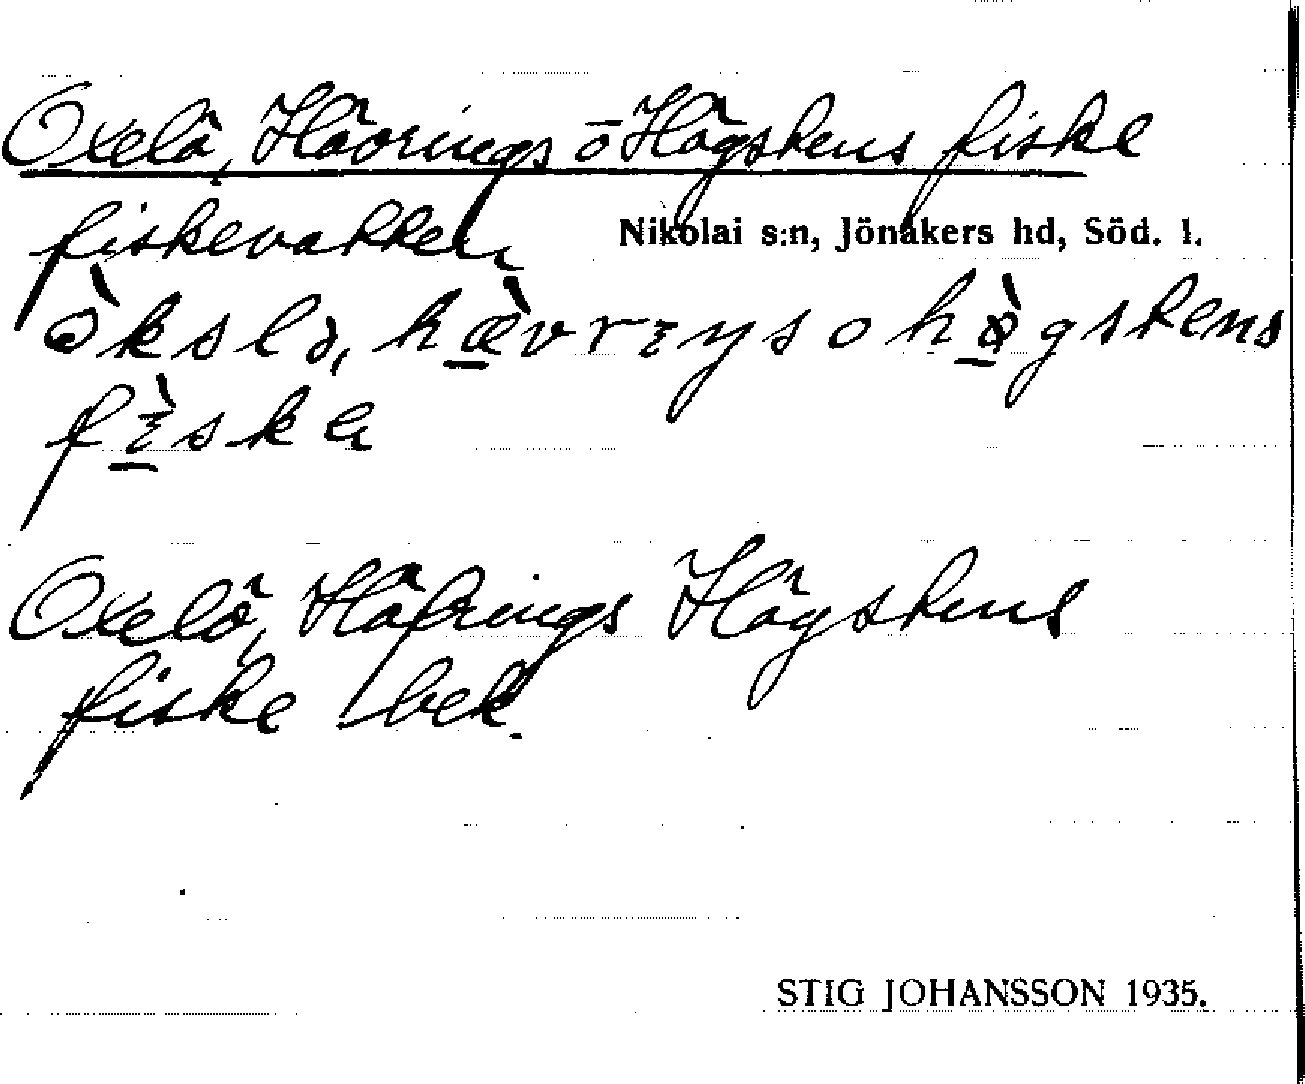 Oxelö, Hävrings o Högskens fiske
fiskevatten Nikolai s:n, Jönåkers hd, Söd. l.
òkslə, hæ̀vrɪŋs o hø̀gskens
fɪ̀ske
Oxelö, Häfrings Högskens
fiske bek.
STIG JOHANSSON 1935.